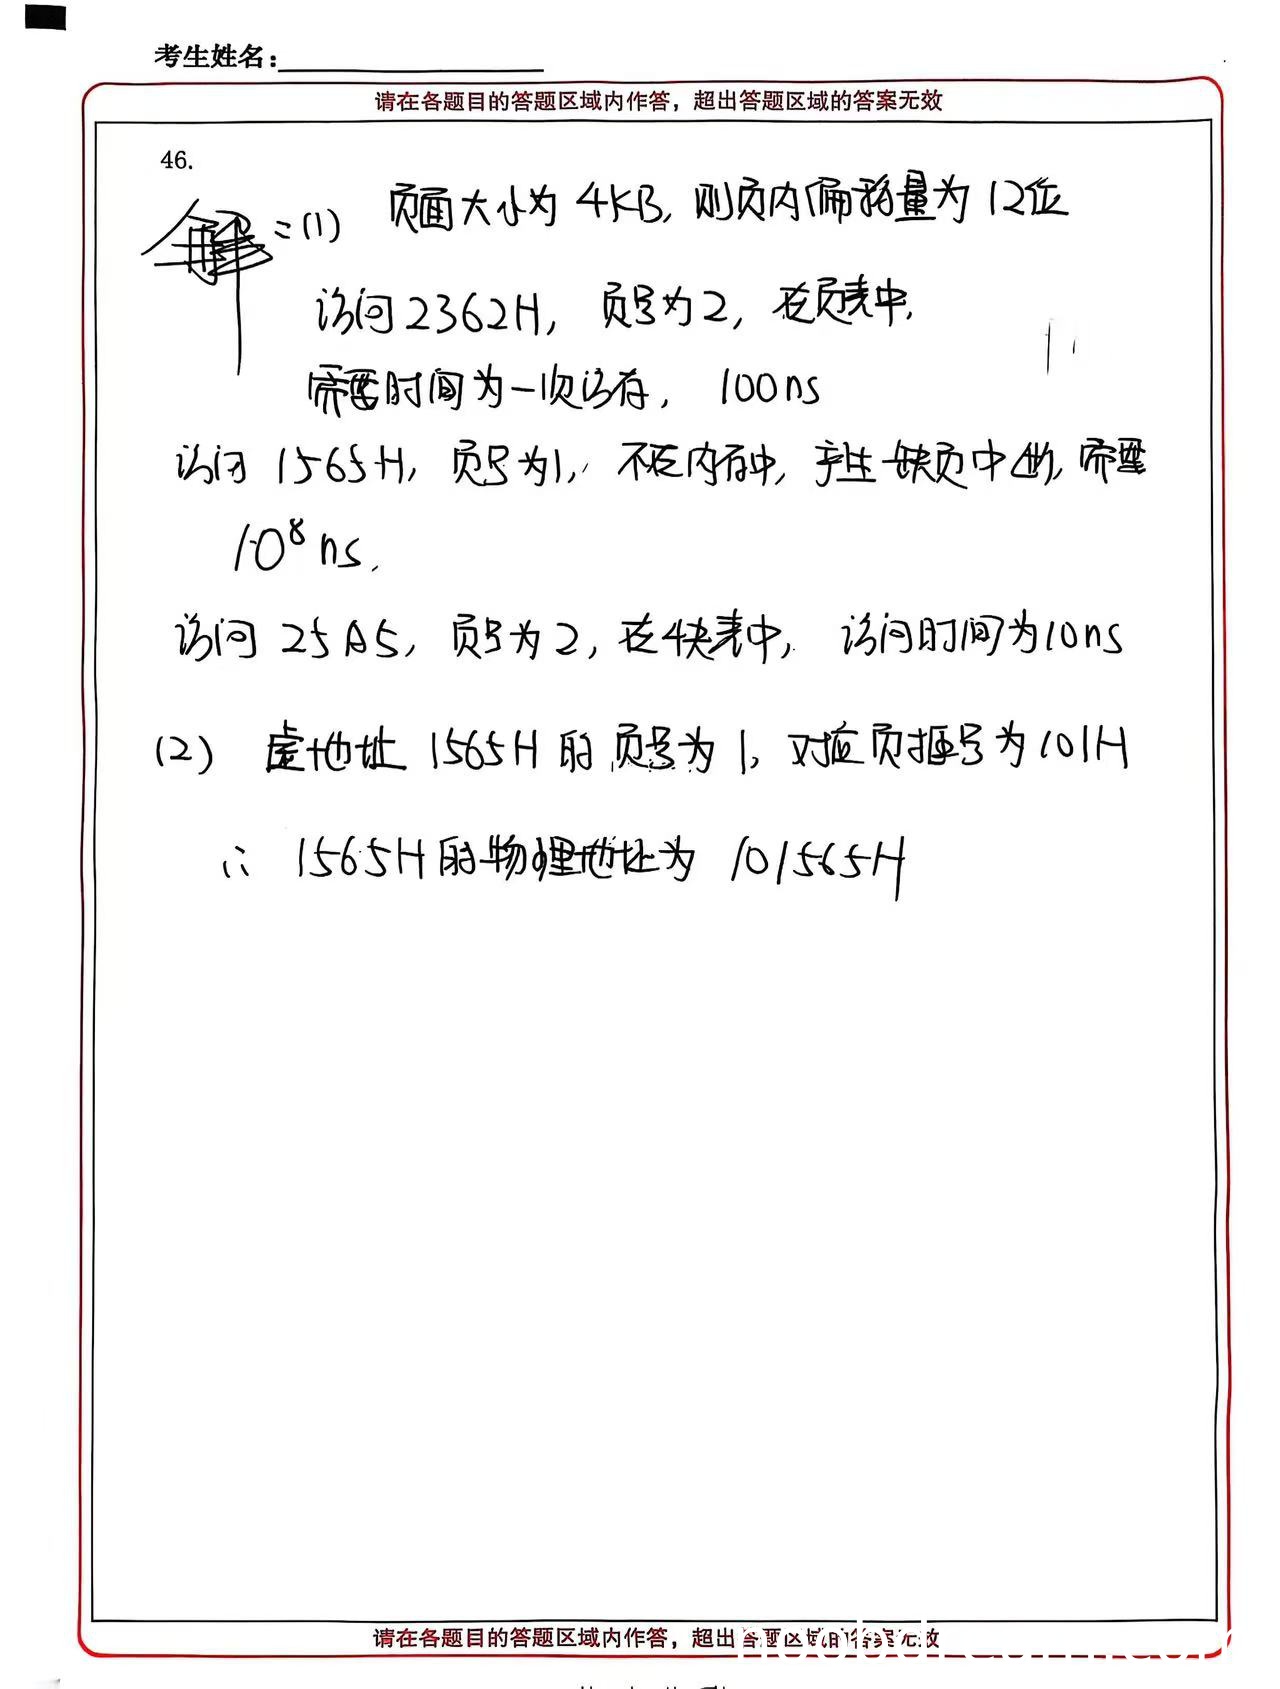 考生姓名:
请在各题目的答题区域内作答，超出答题区域的答案无效
46.
解:(1) 页面大小为4KB, 则页内偏移量为12位
访问2362H, 页号为2, 在页表中,
需要时间为一次访存, 100ns
访问1565H, 页号为1, 不在内存中, 产生缺页中断, 需要
10⁸ns.
访问25A5, 页号为2, 在快表中, 访问时间为10ns
(2) 虚地址1565H的页号为1, 对应页框号为101H
∴ 1565H的物理地址为101565H
请在各题目的答题区域内作答，超出答题区域的答案无效